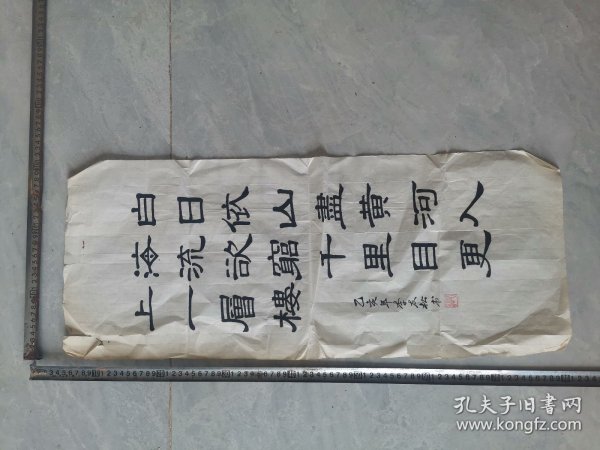 白日依山盡黃河入
海流欲窮千里目更
上一層樓
乙亥年
孔夫子旧書网
www.kongfz.com